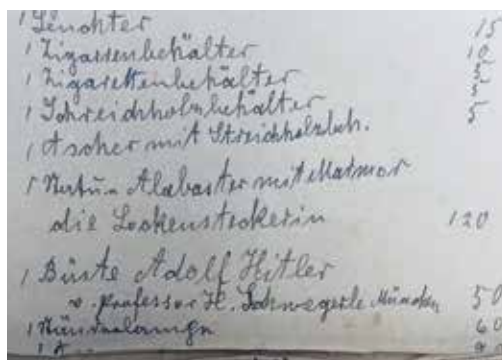 1 Leuchter 15
1 Zigarrenbehälter 10
1 Zigarettenbehälter 5
1 Streichholzbehälter 5
1 Ascher mit Streichholzbeh. 5
1 Alabaster mit Marmor
die Lockensteckerin 120
1 Büste Adolf Hitler
v. Professor H. Schwegerle München 50
1 60
1